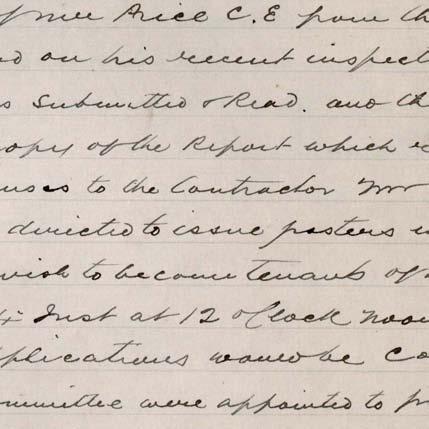 from Mr Price C.E from th
d on his recent inspect
s Submitted & Read. and th
copy of the Report which
to the Contractor Mr
directed to issue posters
wish to become tenants of
Inst at 12 o'Clock noon
pplications would be Co
ommittee were appointed to pr